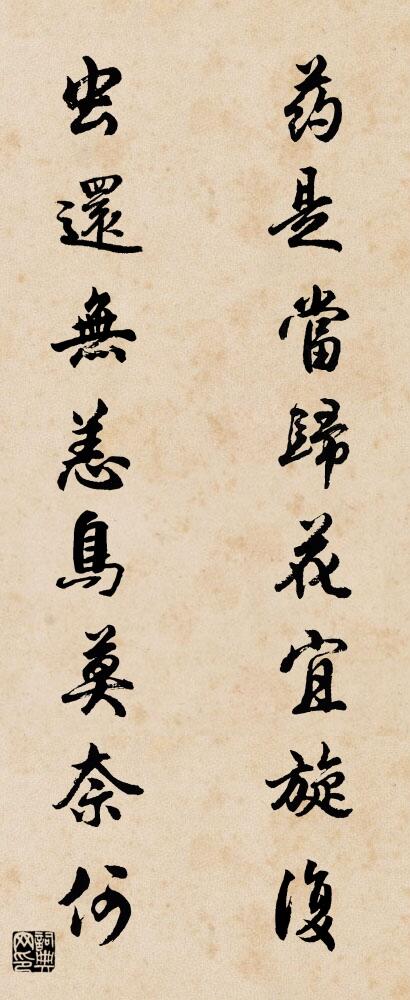 药是當歸花宜旋復
虫還無恙鳥莫奈何
詞典網印